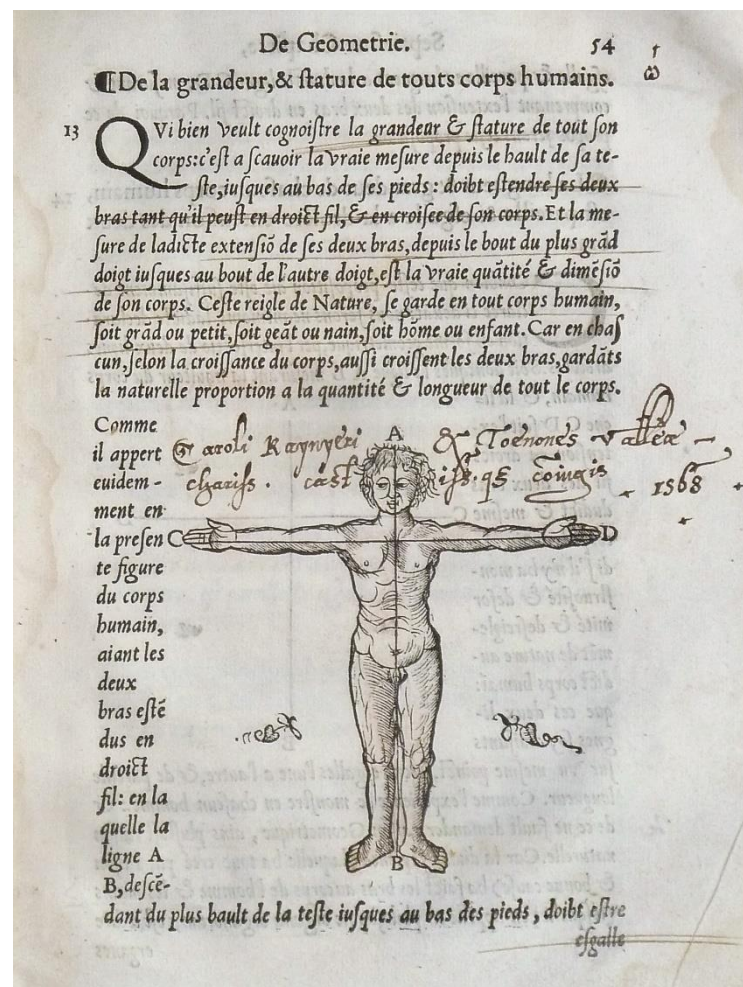 De Geometrie. 54
¶De la grandeur,& stature de touts corps humains.
13 QVi bien veult cognoiſtre la grandeur & ſtature de tout ſon
corps:c'eſt a ſcauoir la vraie meſure depuis le hault de ſa te-
ſte,iuſques au bas de ſes pieds : doibt eſtendre ſes deux
bras tant qu'il peuſt en droict fil,& en croiſee de ſon corps.Et la me-
ſure de ladicte extenſiõ de ſes deux bras,depuis le bout du plus grãd
doigt iuſques au bout de l'autre doigt,eſt la vraie quãtité & dimẽſiõ
de ſon corps. Ceſte reigle de Nature, ſe garde en tout corps humain,
ſoit grãd ou petit,ſoit geãt ou nain,ſoit hõme ou enfant.Car en chaſ
cun,ſelon la croiſſance du corps,auſſi croiſſent les deux bras,gardãts
la naturelle proportion a la quantité & longueur de tout le corps.
Comme
il appert
euidem-
ment en
la preſen
te figure
du corps
humain,
aiant les
deux
bras eſtẽ
dus en
droict
fil: en la
quelle la
ligne A
B,deſcẽ-
dant du plus hault de la teſte iuſques au bas des pieds, doibt eſtre
eſgalle
A
C D
B
Caroli Raynyeri
chariſs.
1568